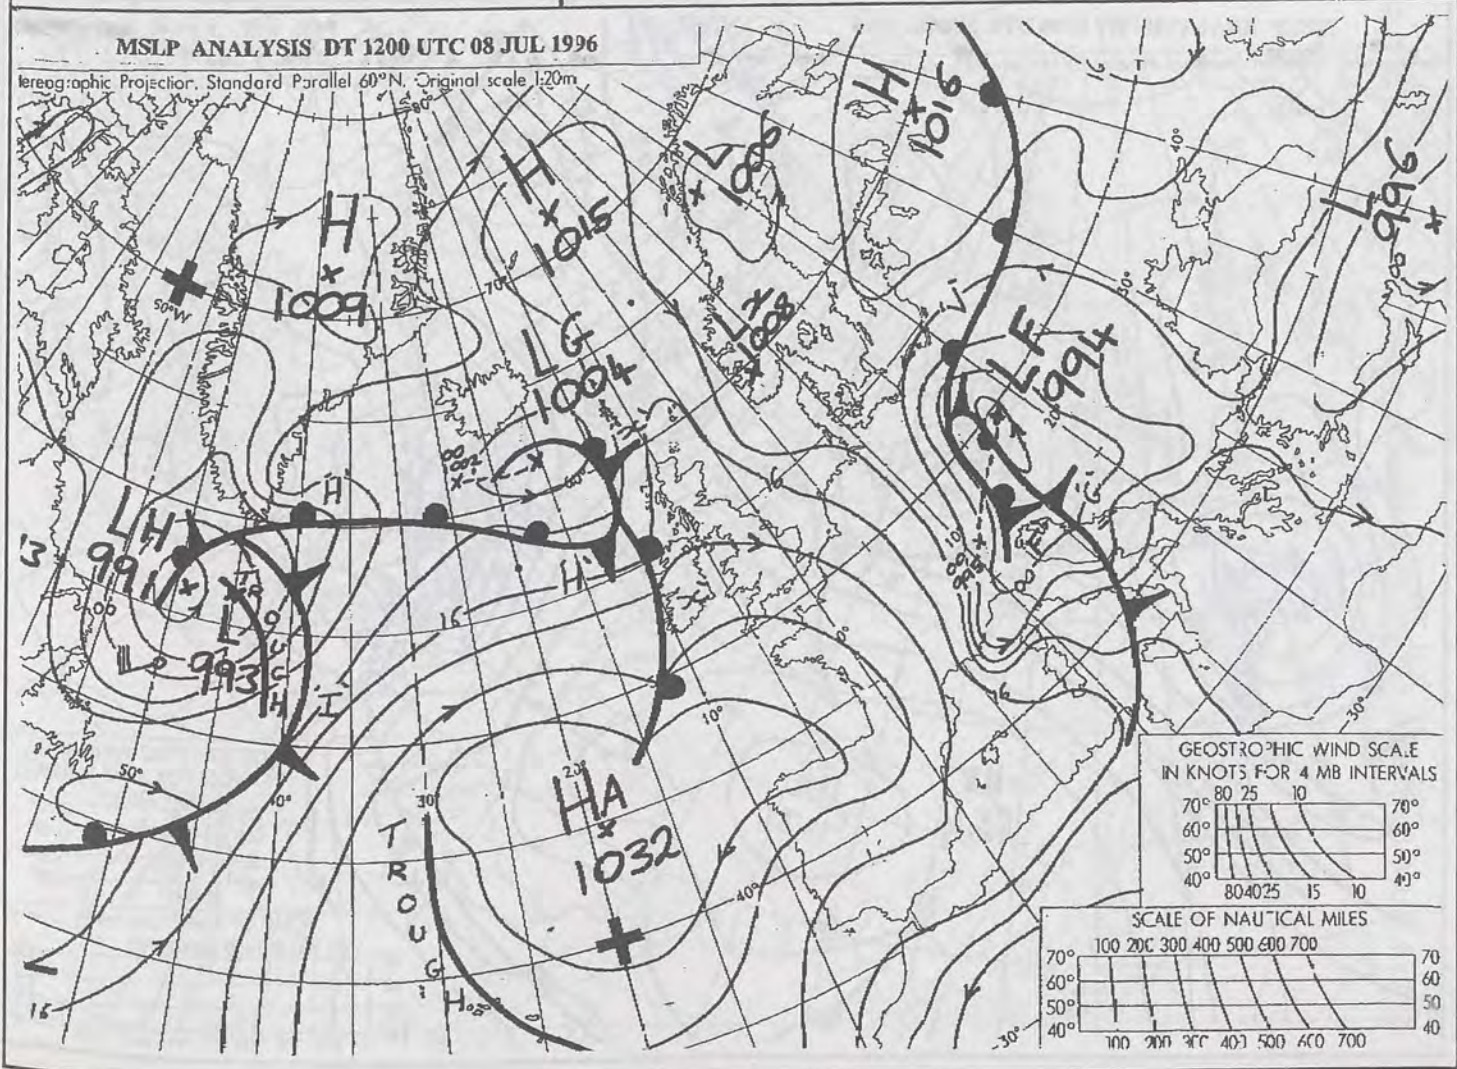 MSLP ANALYSIS DT 1200 UTC 08 JUL 1996
tereographic Projection. Standard Parallel 60°N. Original scale 1:20m
80°
H
1016
16
40°
L
1000
L
996
H
1015
H
1009
50°W
70°
L
1008
30°
L F
994
20°
L G
1004
60°
16
H
L H
991
13
H
16
TROUGH
L
993
10°
16
0°
30°
50°
40°
30
20°
H A
1032
40°
TROUGH
16
-30°
GEOSTROPHIC WIND SCALE
IN KNOTS FOR 4 MB INTERVALS
80 25 10
70° 70°
60° 60°
50° 50°
40° 40°
80 40 25 15 10
SCALE OF NAUTICAL MILES
100 200 300 400 500 600 700
70° 70
60° 60
50° 50
40° 40
100 200 300 400 500 600 700